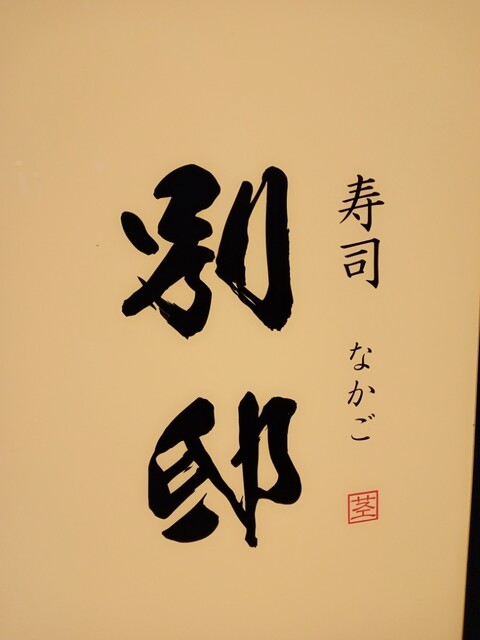 寿司 なかご
茎
別邸